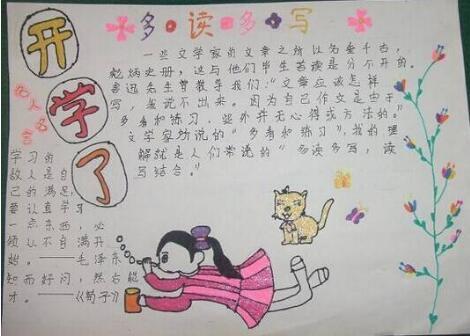 开
学
了
多·读·多·写
名人名言
一些文学家的文章之所以为垂千古，
彪炳史册，这与他们毕生苦读是分不开的。
鲁迅先生曾教导我们：“文章应该怎样
写，我说不出来。因为自己作文是由于
多看和练习，些外并无心得或方法的。”
文学家所说的“多看和练习”，我的理
解就是人们常说的“多读多写，读
写结合。”
学习的
敌人是自
己的满足，
要认真学习
一点东西，必
须从不自满开
始。——毛泽东
知而好问，然后能
才。——《荀子》